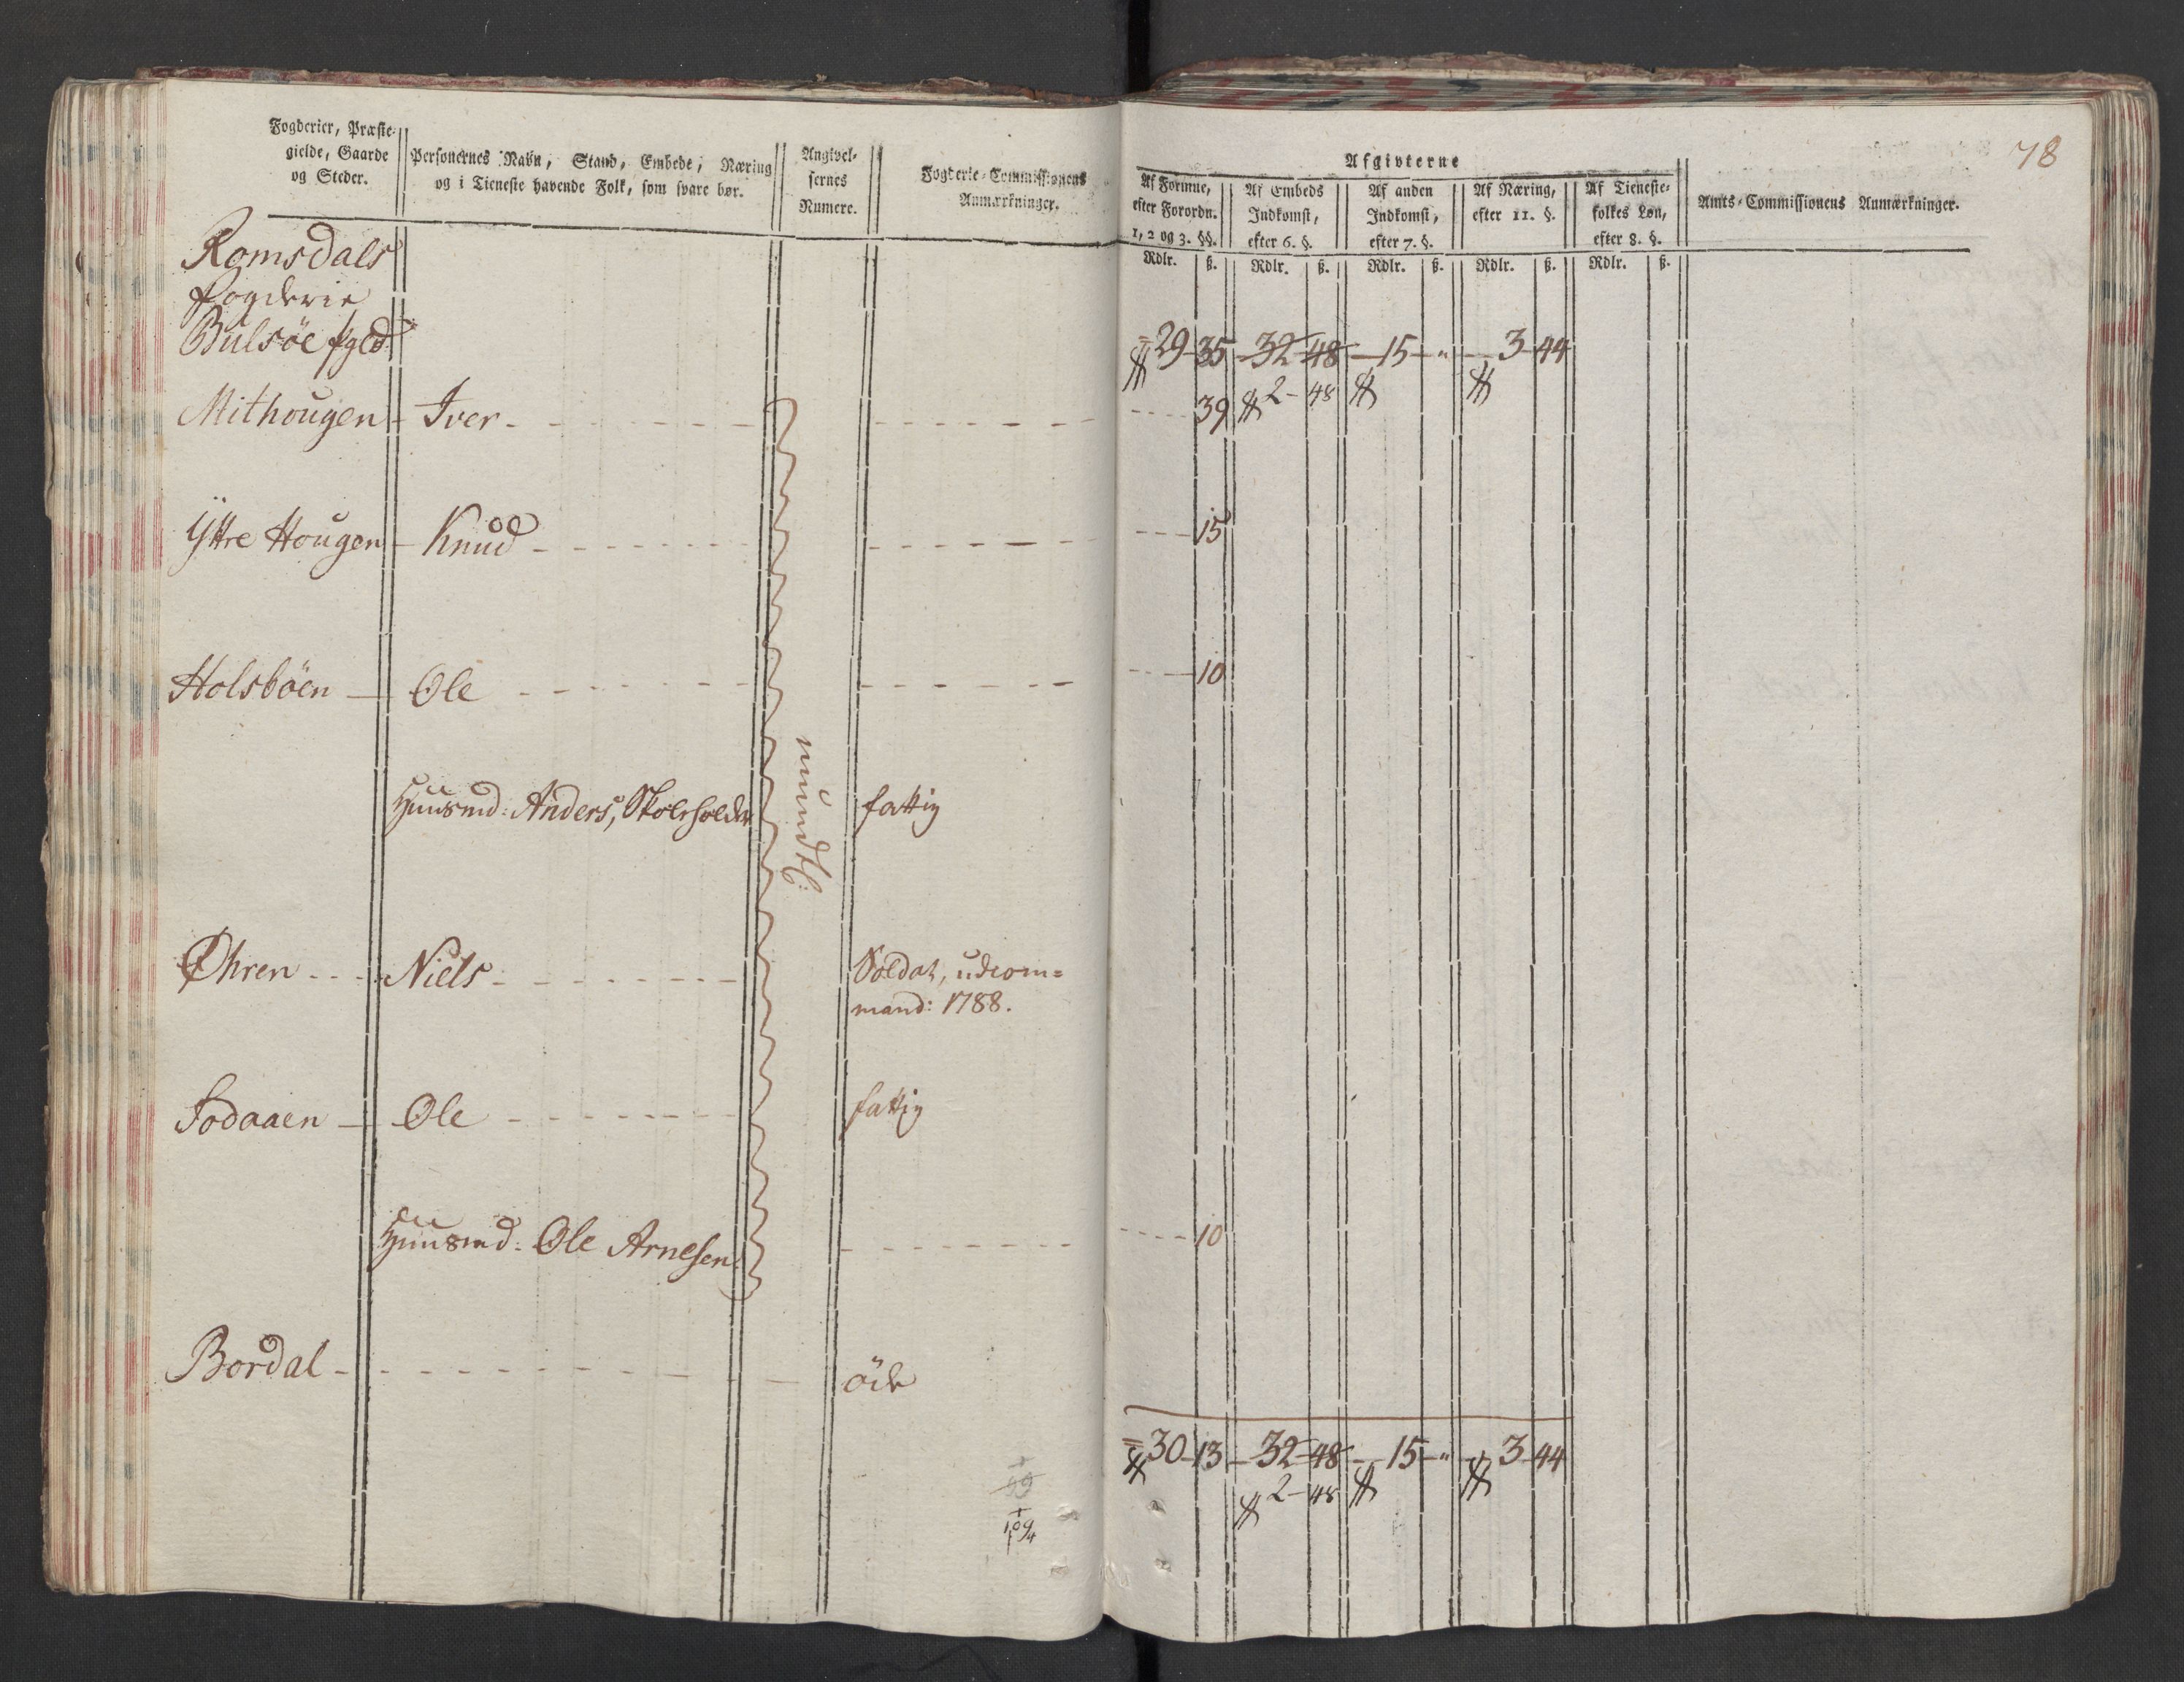 Fogderier, Præste-
gielde, Gaarde
og Steder.
Personernes Navn, Stand, Embede, Næring
og i Tieneste havende Folk, som svare bør.
Angivel-
sernes
Numere.
Fogderie-Commissionens
Anmærkninger.
78
Afgivterne
Af Formue,
efter Forordn.
1, 2 og 3. §§.
Af Embeds
Indkomst,
efter 6. §.
Af anden
Indkomst,
efter 7. §.
Af Næring,
efter 11. §.
Af Tieneste-
folkes Løn,
efter 8. §.
Amts-Commissionens Anmærkninger.
Rdlr. ß. Rdlr. ß. Rdlr. ß. Rdlr. ß. Rdlr. ß.
Romsdals
fogderie
Bulsöe pgld
29 35 32 48 15 " 3 44
2 48
Mithougen Iver 39
Yttre Hougen Knud 15
Holsböen Ole 10
Huusmd: Anders, Skoleholder fattig
mundtl:
Öhren Niels Soldat, udcom=
mand: 1788.
Sodaaen Ole fattig
Huusmd: Ole Arnesen 10
Bordal öde
30 13 32 48 15 " 3 44
2 48